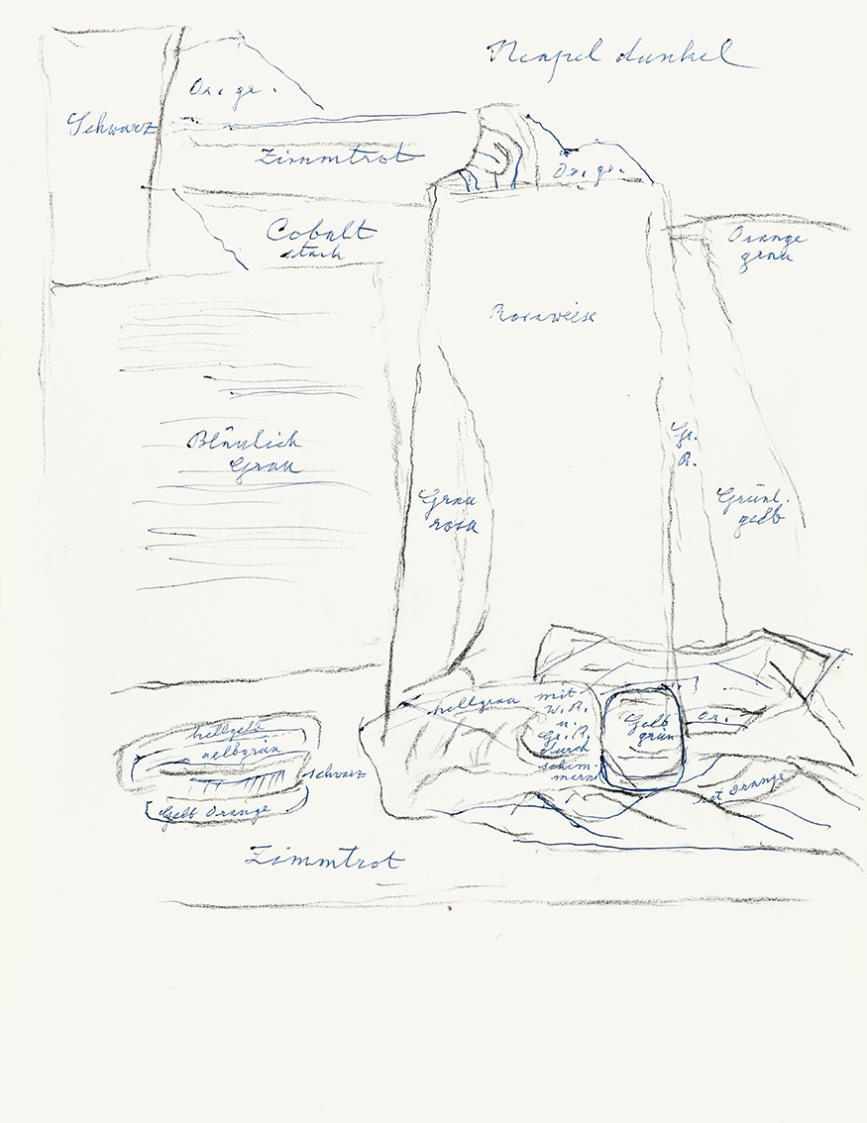 Neapel dunkel
Or. gr.
Schwarz
Zimmtrot
Or. gr.
Cobalt
stark
Orange
grau
Rosaweiss
Bläulich
Grau
Gr.
R.
Grau
rosa
Grünl.
gelb
hellgrau
mit
W. R.
u.
Gr. R.
durch
schim-
mern
Gelb
grün
Or.
hellgelb
gelbgrün
schwarz
Gelb Orange
rot Orange
Zimmtrot